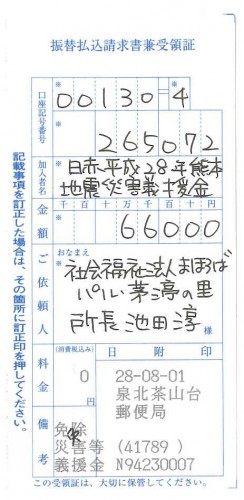 振替払込請求書兼受領証
口座記号番号
00130-4
265072
加入者名
日赤平成28年熊本
地震災害義援金
金額
千 百 十 万 千 百 十 円
66000
ご依頼人
おなまえ
社会福祉法人まほろば
パル・茅渟の里
所長 池田淳 様
料金
(消費税込み)
0 円
日附印
28-08-01
泉北茶山台
郵便局
備考
免除
災害等 (41789)
義援金 N94230007
この受領証は、大切に保管してください。
記載事項を訂正した場合は、その箇所に訂正印を押してください。